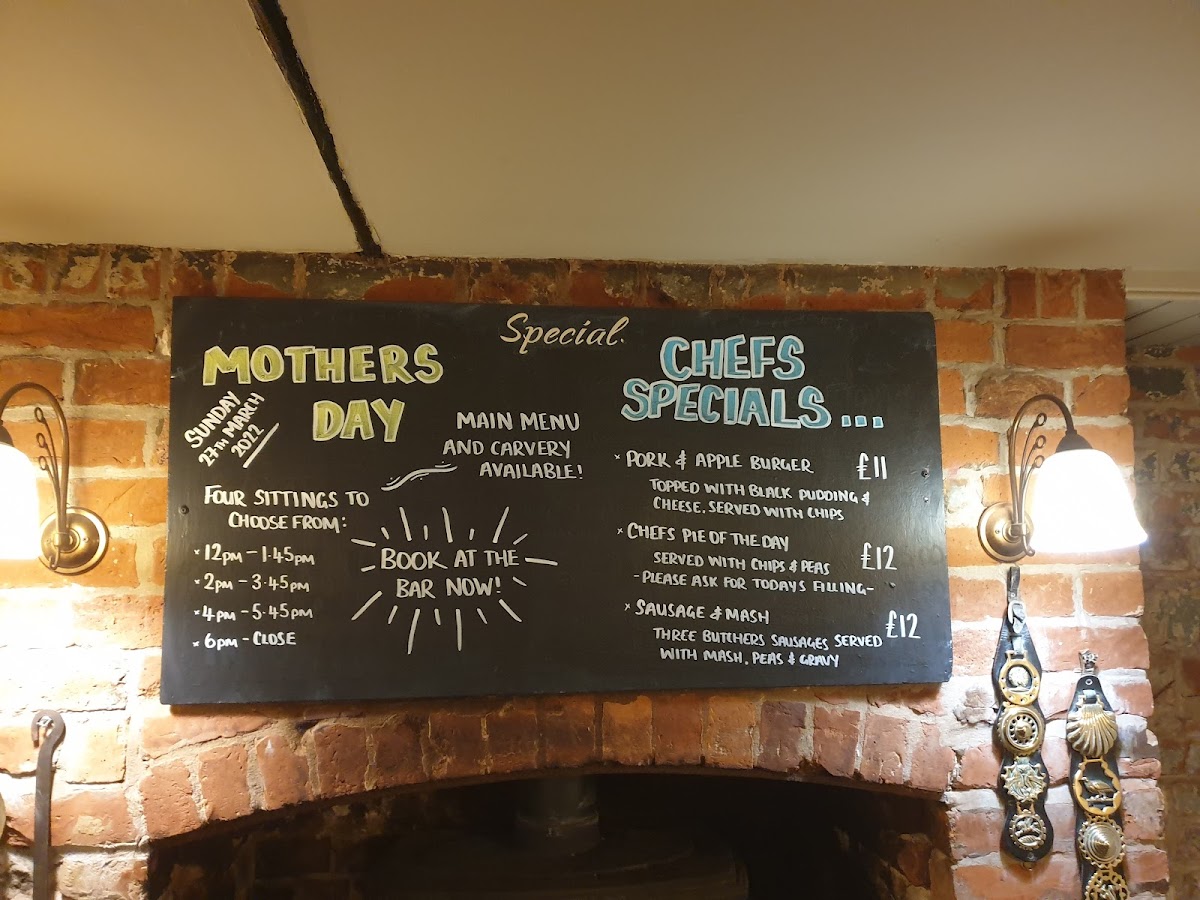 Special.
MOTHERS
DAY
SUNDAY
27TH MARCH
2022
MAIN MENU
AND CARVERY
AVAILABLE!
FOUR SITTINGS TO
CHOOSE FROM:
* 12PM - 1.45PM
* 2PM - 3.45PM
* 4PM - 5.45PM
* 6PM - CLOSE
BOOK AT THE
BAR NOW!
CHEFS
SPECIALS...
* PORK & APPLE BURGER £11
TOPPED WITH BLACK PUDDING &
CHEESE. SERVED WITH CHIPS
* CHEFS PIE OF THE DAY £12
SERVED WITH CHIPS & PEAS
- PLEASE ASK FOR TODAYS FILLING -
* SAUSAGE & MASH £12
THREE BUTCHERS SAUSAGES SERVED
WITH MASH, PEAS & GRAVY